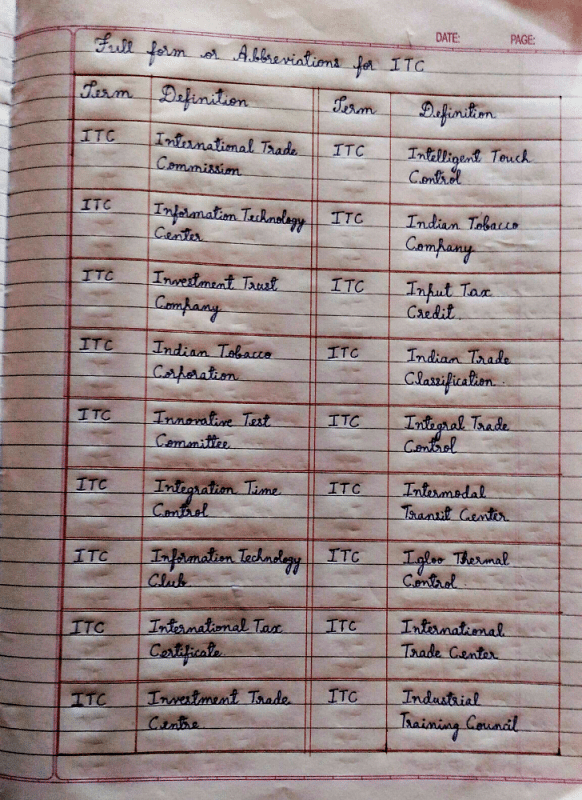 DATE: PAGE:
Full form or Abbreviations for ITC
Term Definition Term Definition
ITC International Trade ITC Intelligent Touch
Commission Control
ITC Information Technology ITC Indian Tobacco
Center Company
ITC Investment Trust ITC Input Tax
Company Credit.
ITC Indian Tobacco ITC Indian Trade
Corporation Classification.
ITC Innovative Test ITC Integral Trade
Committee Control
ITC Integration Time ITC Intermodal
Control Transit Center
ITC Information Technology ITC Igloo Thermal
Club Control.
ITC International Tax ITC International
Certificate Trade Center
ITC Investment Trade ITC Industrial
Centre Training Council